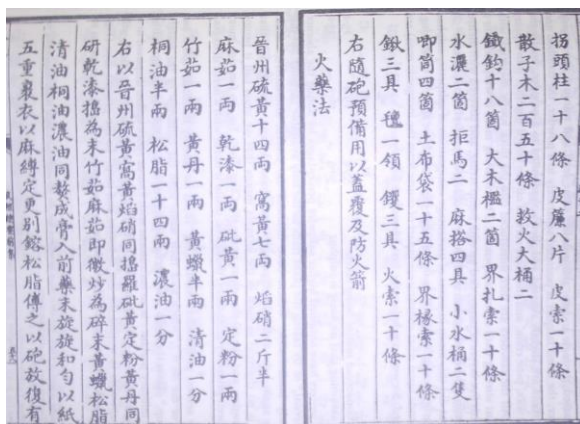 拐頭柱一十八條 皮簾八片 皮索一十條
散子木二百五十條 救火大桶二
鐵鈎十八箇 大木檻二箇 界扎索一十條
水 二箇 拒馬二 麻搭四具 小水桶二隻
唧筒四箇 土布袋一十五條 界椽索一十條
鍬三具 氊一領 钁三具 火索一十條
右隨砲預備用以蓋覆及防火箭
火藥法
晉州硫黃十四兩 窩黃七兩 焰硝二斤半
麻茹一兩 乾漆一兩 砒黃一兩 定粉一兩
竹茹一兩 黃丹一兩 黃蠟半兩 清油一分
桐油半兩 松脂一十四兩 濃油一分
右以晉州硫黃窩黃焰硝同搗羅砒黃定粉黃丹同
研乾漆搗為末竹茹麻茹即微炒為碎末黃蠟松脂
清油桐油濃油同熬成膏入前藥末旋旋和勻以紙
五重裹衣以麻縛定更別鎔松脂傅之以砲放復有